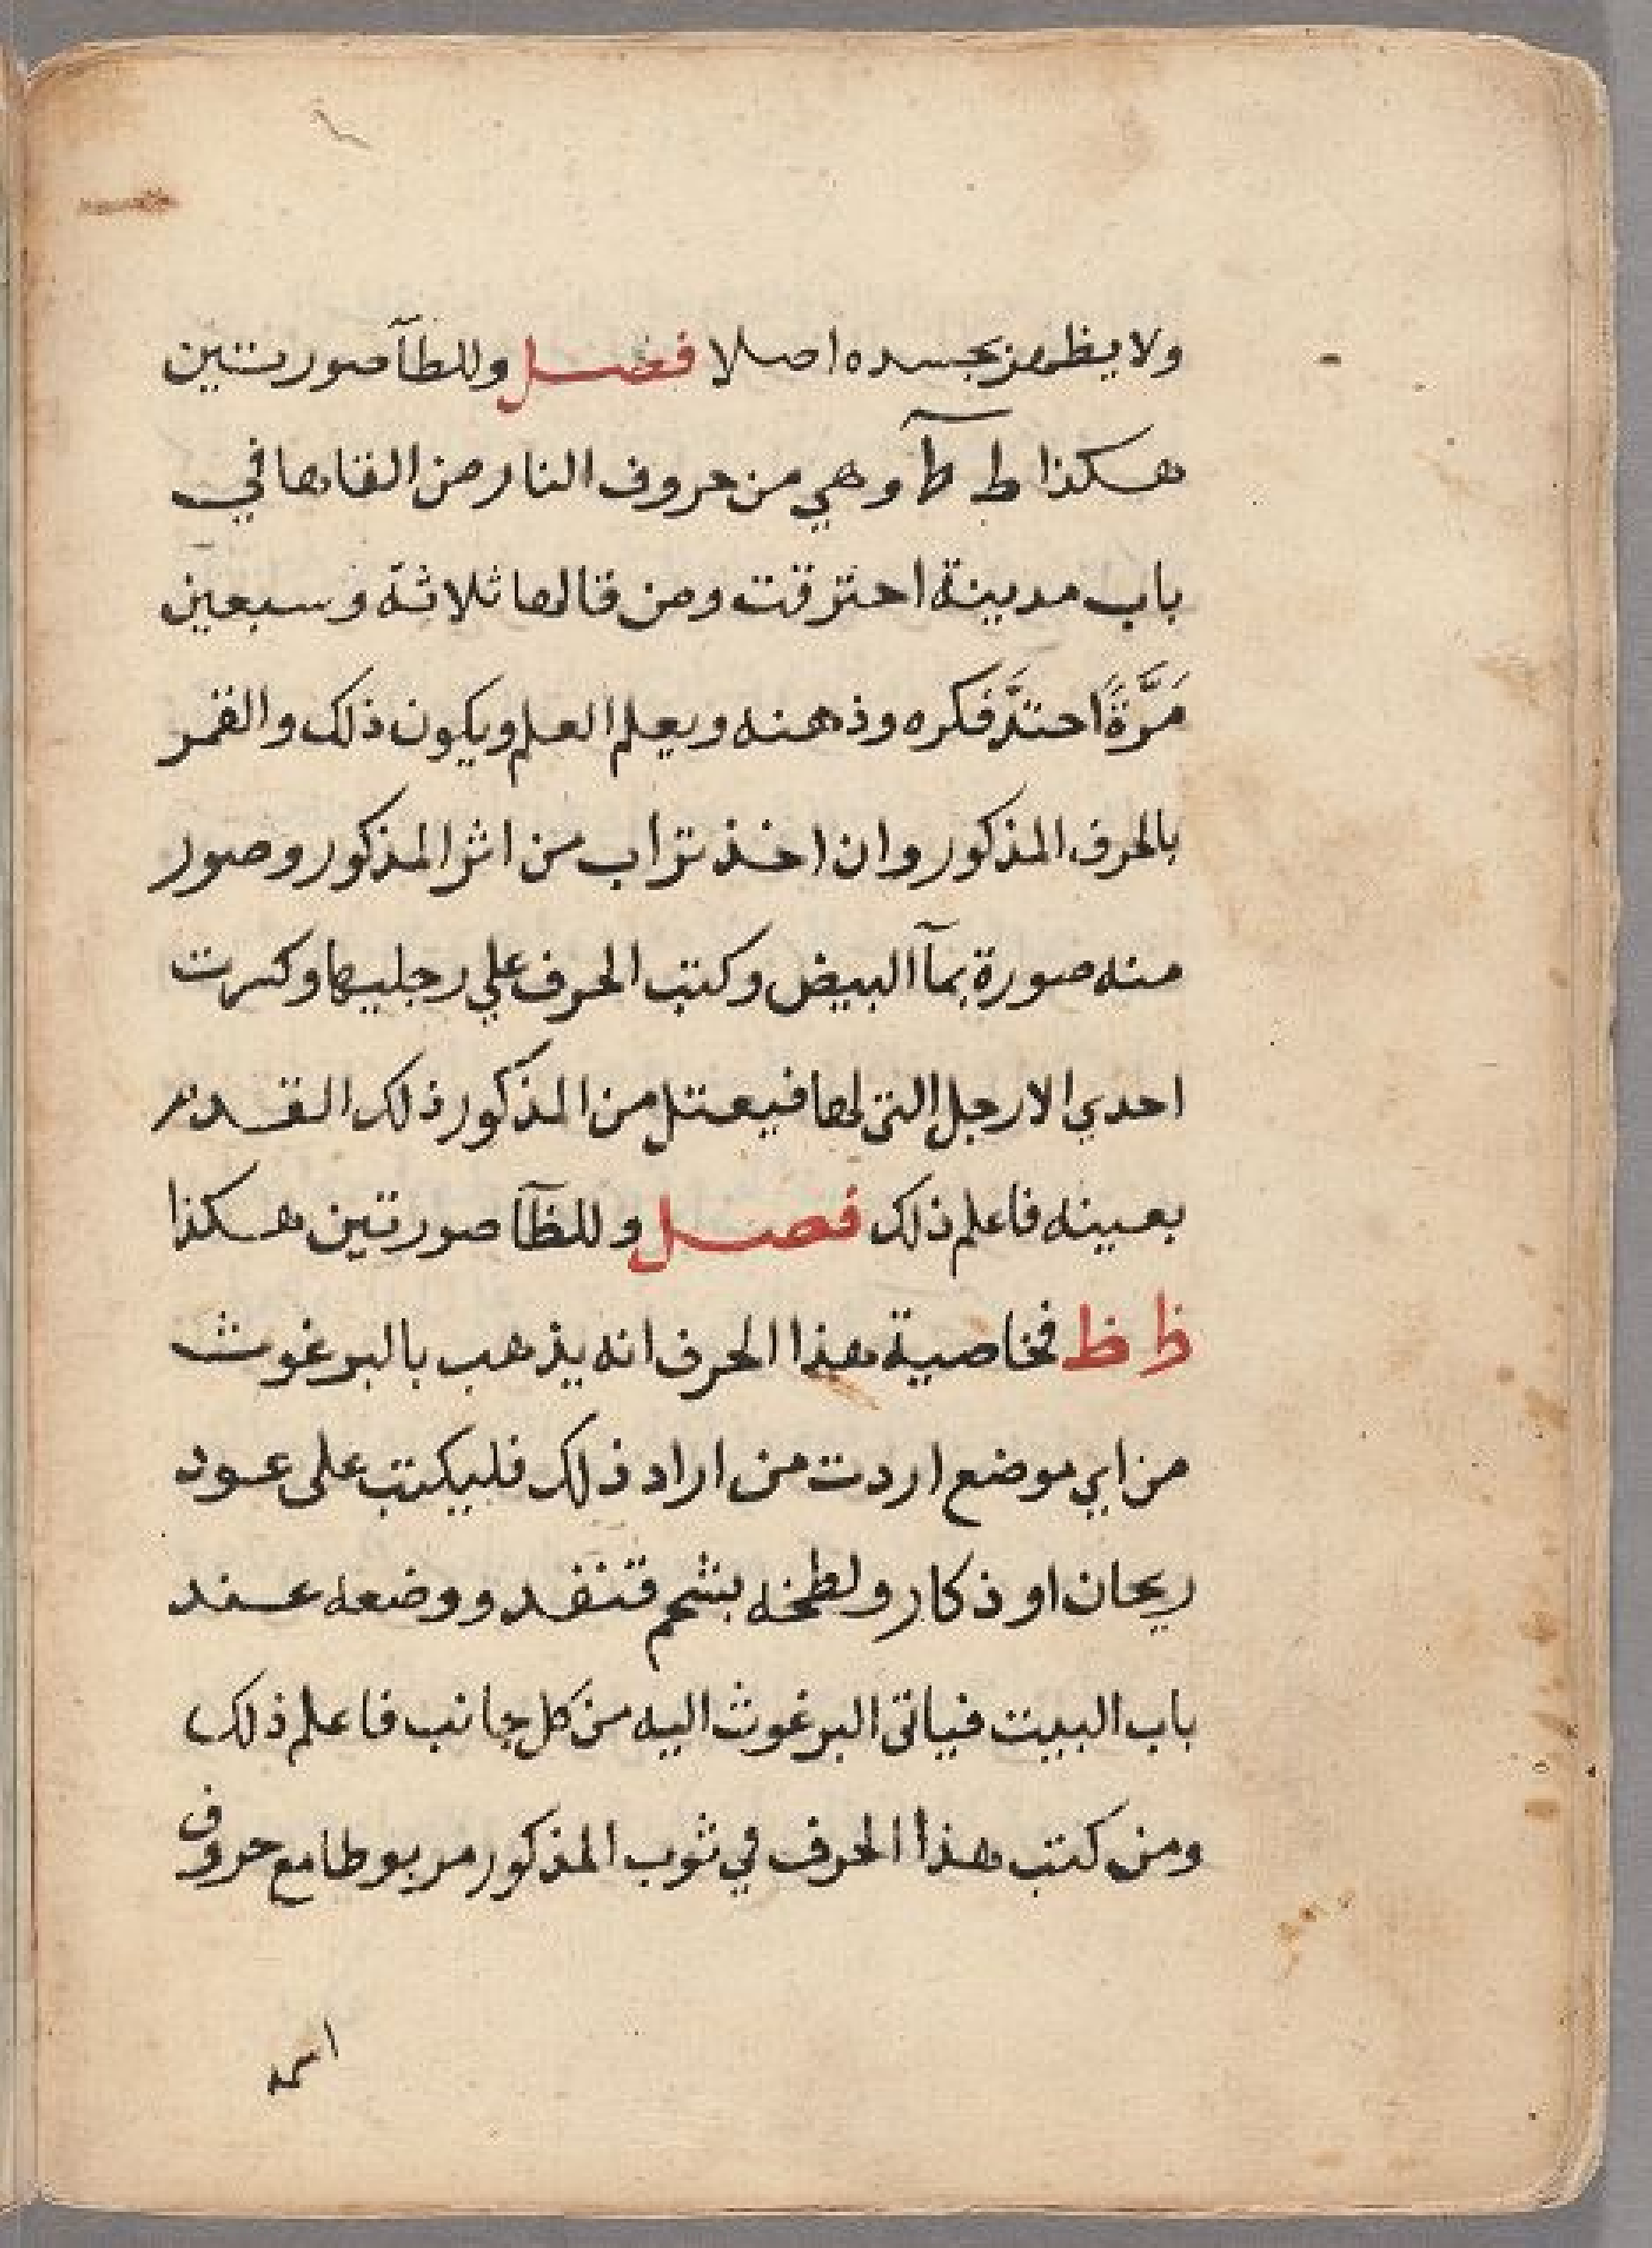 ولا يظهر بجسده اصلا فصل وللطآ صورتين
هكذا ط طآ وهي من حروف النار من القاها في
باب مدينة احترقت ومن قالها ثلاثة وسبعين
مَرَّةً احتدَّ فكره وذهنه ويعلم العلم ويكون ذلك والقمر
بالحرف المذكور وان اخذ تراب من اثر المذكور وصور
منه صورة بمآ البيض وكتب الحرف علي رجليها وكسرت
احدي الارجل التي لها فيعتل من المذكور ذلك القدم
بعينه فاعلم ذلك فصل وللظآ صورتين هكذا
ظ ظ فخاصية هذا الحرف انه يذهب بالبرغوث
من اي موضع اردت من اراد ذلك فليكتب على عود
ريحان او ذكار ولطخه بشحم قنفد ووضعه عند
باب البيت فياتى البرغوث اليه من كل جانب فاعلم ذلك
ومن كتب هذا الحرف في ثوب المذكور مربوطا مع حروف
اسمه